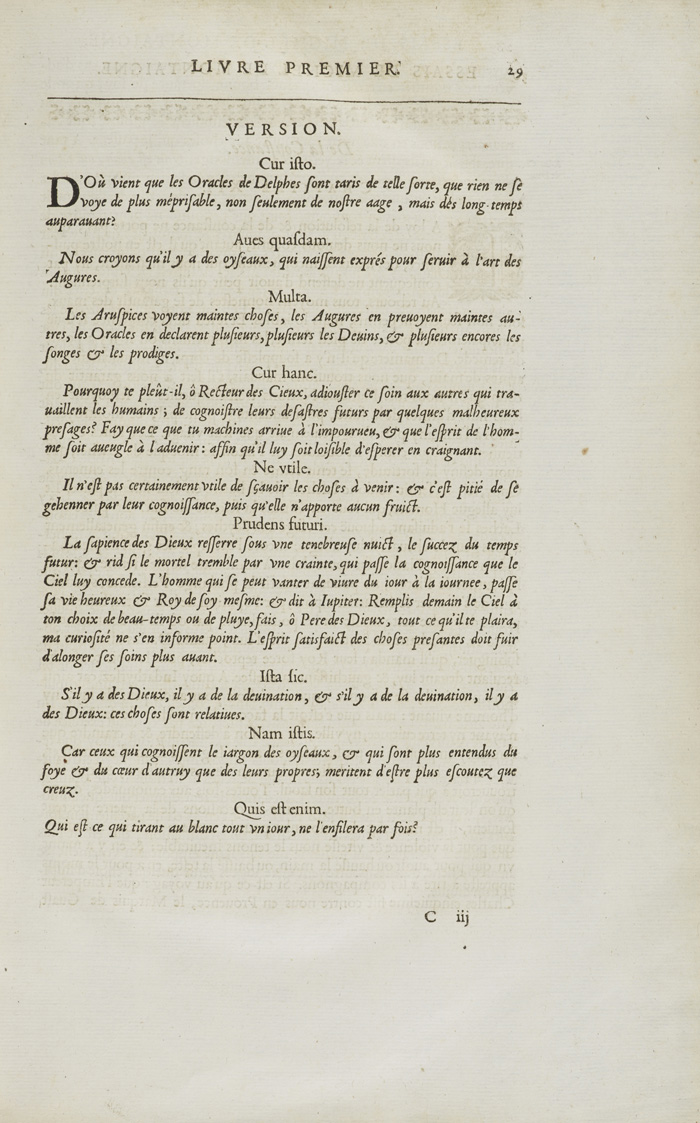 LIVRE PREMIER. 29
VERSION.
Cur iſto.
D'Où vient que les Oracles de Delphes ſont taris de telle ſorte, que rien ne ſe
voye de plus mépriſable, non ſeulement de noſtre aage, mais dés long-temps
auparauant?
Aues quaſdam.
Nous croyons qu'il y a des oyſeaux, qui naiſſent exprés pour ſeruir à l'art des
Augures.
Multa.
Les Aruſpices voyent maintes choſes, les Augures en preuoyent maintes au-
tres, les Oracles en declarent pluſieurs, pluſieurs les Deuins, & pluſieurs encores les
ſonges & les prodiges.
Cur hanc.
Pourquoy te pleût-il, ô Recteur des Cieux, adiouſter ce ſoin aux autres qui tra-
uaillent les humains; de cognoiſtre leurs deſaſtres futurs par quelques malheureux
preſages? Fay que ce que tu machines arriue à l'impourueu, & que l'eſprit de l'hom-
me ſoit aueugle à l'aduenir: affin qu'il luy ſoit loiſible d'eſperer en craignant.
Ne vtile.
Il n'eſt pas certainement vtile de ſçauoir les choſes à venir: & c'eſt pitié de ſe
gehenner par leur cognoiſſance, puis qu'elle n'apporte aucun fruict.
Prudens futuri.
La ſapience des Dieux reſſerre ſous vne tenebreuſe nuict, le ſuccez du temps
futur: & rid ſi le mortel tremble par vne crainte, qui paſſe la cognoiſſance que le
Ciel luy concede. L'homme qui ſe peut vanter de viure du iour à la iournee, paſſe
ſa vie heureux & Roy de ſoy meſme: & dit à Iupiter: Remplis demain le Ciel à
ton choix de beau-temps ou de pluye, fais, ô Pere des Dieux, tout ce qu'il te plaira,
ma curioſité ne s'en informe point. L'eſprit ſatisfaict des choſes preſantes doit fuir
d'alonger ſes ſoins plus auant.
Iſta ſic.
S'il y a des Dieux, il y a de la deuination, & s'il y a de la deuination, il y a
des Dieux: ces choſes ſont relatiues.
Nam iſtis.
Car ceux qui cognoiſſent le iargon des oyſeaux, & qui ſont plus entendus du
foye & du cœur d'autruy que des leurs propres, meritent d'eſtre plus eſcoutez que
creuz.
Quis eſt enim.
Qui eſt ce qui tirant au blanc tout vn iour, ne l'enfilera par fois?
C iij